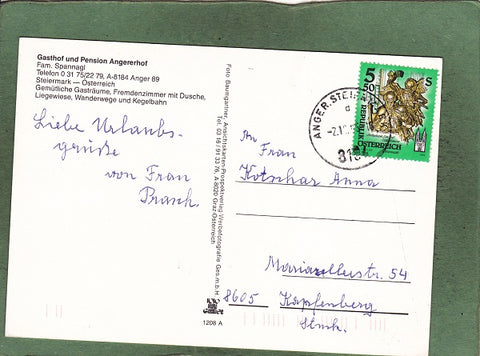 Gasthof und Pension Angererhof
Fam. Spannagl
Telefon 0 31 75/22 79, A-8184 Anger 89
Steiermark — Österreich
Gemütliche Gasträume, Fremdenzimmer mit Dusche,
Liegewiese, Wanderwege und Kegelbahn
Liebe Urlaubs-
grüße
von Frau
Prasch.
Foto Baumgartner, Ansichtskarten-Prospektverlag Werbefotografie Ges.m.b.H
Tel. 03 16/91 33 76, A 8020 Graz-Österreich
1208 A
ANGER, STEIERM
5 50 S
REPUBLIK
ÖSTERREICH
An
Frau
Kotschar Anna
Mariazellerstr. 54
8605 Kapfenberg
Stmk.